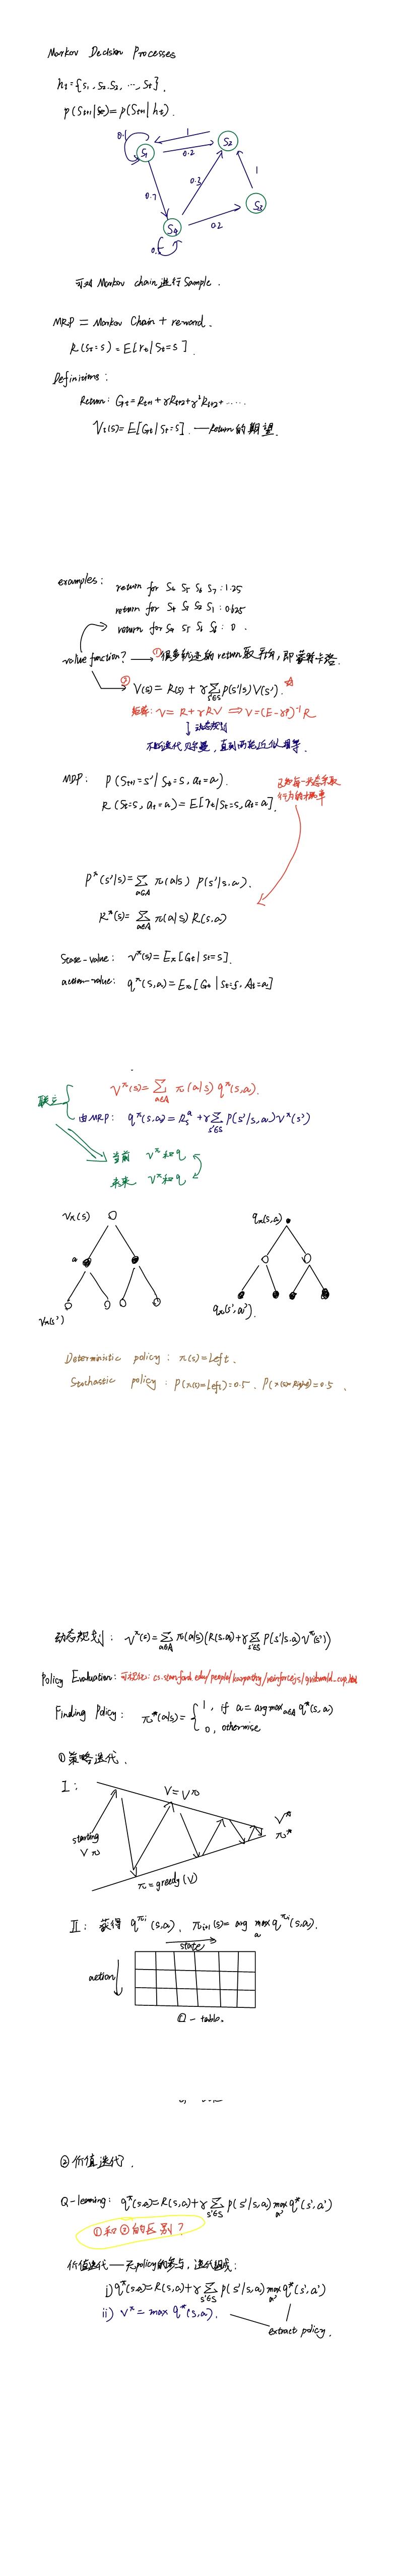 Markov Decision Processes
ht={s1, s2, s3, ..., st}.
p(St+1|st)=p(St+1|ht).
0.1
1
S1
0.2
S2
0.7
0.3
1
S3
S4
0.2
0.5
可对 Markov chain 进行 Sample.
MRP = Markov Chain + reward.
R(st=s) = E[rt|St=s].
Definitions:
Return: Gt=Rt+1+γRt+2+γ²Rt+3+.....
Vt(s)=E[Gt|St=s]. —Return的期望.
examples:
return for S4 S5 S6 S7: 1.25
return for S4 S3 S2 S1: 0.625
return for S4 S5 S6 S6: 0.
value function? → ①很多轨迹的return取平均,即蒙特卡洛.
② V(s) = R(s) + γ∑s'∈S P(s'|s) V(s'). ☆
矩阵: V = R+γPV ⇒ V=(E-γP)⁻¹R
↓动态规划
不断迭代,直到两者近似相等.
MDP: P(St+1=s'|St=s, at=a).
R(St=s, at=a)=E[rt|St=s, at=a].
已知每一状态采取
行为的概率
Pπ(s'|s)=∑a∈A π(a|s) P(s'|s,a).
Rπ(s)=∑a∈A π(a|s) R(s,a)
State-value: vπ(s)=Eπ[Gt|st=s].
action-value: qπ(s,a)=Eπ[Gt|St=s, At=a]
联立
vπ(s)=∑a∈A π(a|s) qπ(s,a).
由MRP: qπ(s,a)=Rsa+γ∑s'∈S P(s'|s,a)vπ(s')
当前 vπ和q
未来 vπ和q
vπ(s)
qπ(s,a)
a
vπ(s')
qπ(s',a').
Deterministic policy: π(s)=Left.
Stochastic policy: P(π(s)=Left)=0.5, P(π(s)=Right)=0.5.
动态规划: vπ(s)=∑a∈A π(a|s)(R(s,a)+γ∑s'∈S P(s'|s,a)vπ(s'))
Policy Evaluation: 可视化: cs.stanford.edu/people/karpathy/reinforcejs/gridworld_dp.html
Finding Policy: π*(a|s)={1, if a=argmax a∈A q*(s,a)
0, otherwise
①策略迭代.
I:
V=Vπ
starting
V π
V*
π*
π=greedy(V)
II: 获得 qπi(s,a), πi+1(s)= arg max a qπi(s,a).
state
action
Q-table.
②价值迭代.
Q-learning: q*(s,a)=R(s,a)+γ∑s'∈S P(s'|s,a) max a' q*(s',a')
①和②的区别?
价值迭代—无policy的参与,迭代组成:
i) q*(s,a)=R(s,a)+γ∑s'∈S P(s'|s,a) max a' q*(s',a')
ii) V* = max q*(s,a).
extract policy.